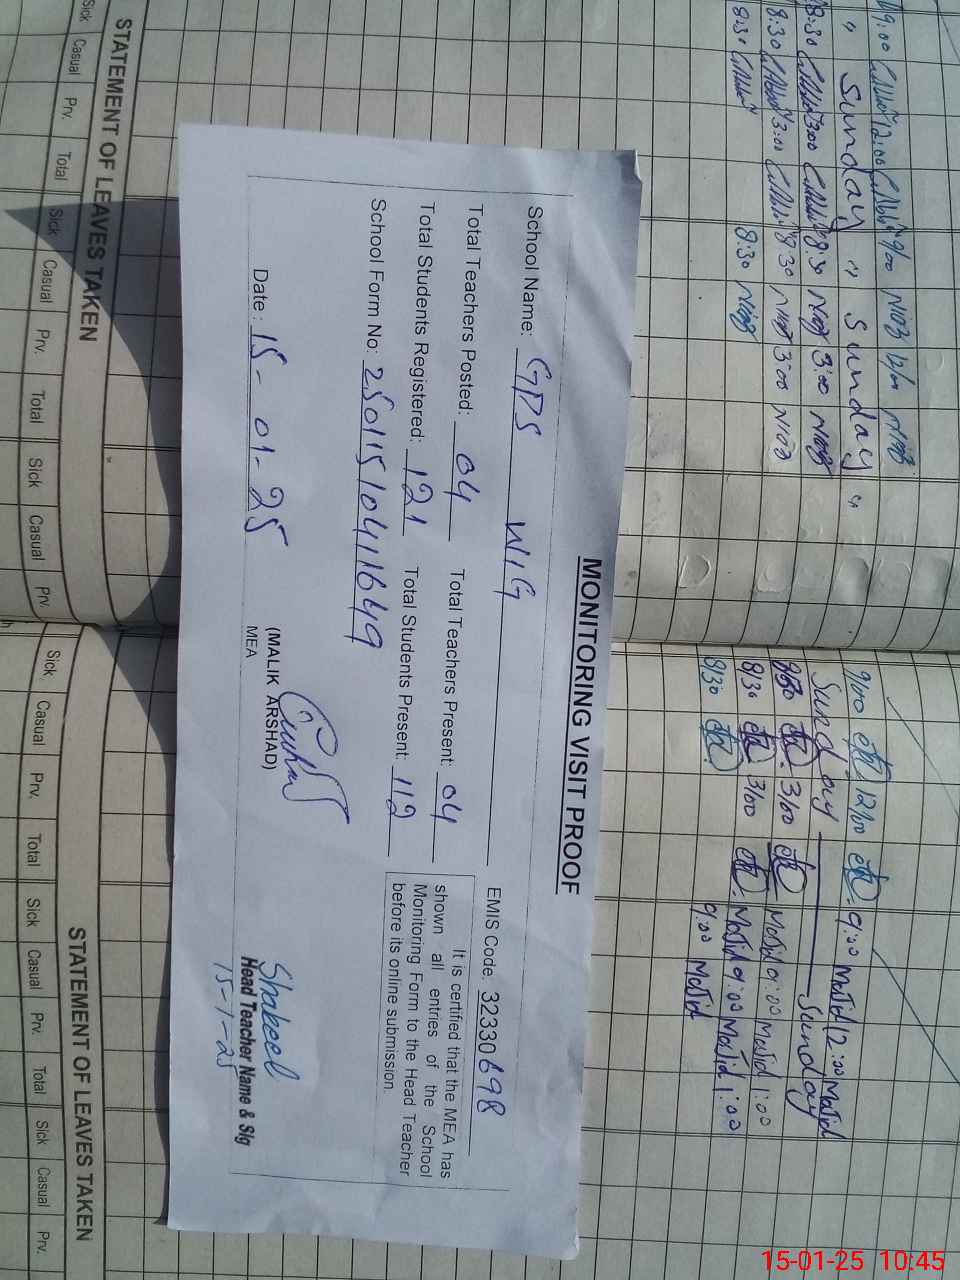 MONITORING VISIT PROOF
School Name: GPS WIG EMIS Code: 32330698
Total Teachers Posted: 04 Total Teachers Present: 04
Total Students Registered: 121 Total Students Present: 112
School Form No: 250115104111649
It is certified that the MEA has
shown all entries of the School
Monitoring Form to the Head Teacher
before its online submission.
Date: 15-01-25
(MALIK ARSHAD)
MEA
Shakeel
Head Teacher Name & Sig
15-1-25
9:00 12:00 9/00 12/00
" Sunday " Sunday "
8:30 3:00 8:30 3:00
8:30 3:00 8:30 3:00
8:30 8:30
9/00 12/00 9:00 Majid 12:00 Majid
Sunday Sunday
8:30 3/00 Majid 9:00 Majid 1:00
8/30 3/00 Majid 9:00 Majid 1:00
8/30 9:00 Majid
STATEMENT OF LEAVES TAKEN
Sick Casual Prv. Total Sick Casual Prv. Total Sick Casual Prv.
STATEMENT OF LEAVES TAKEN
Sick Casual Prv. Total Sick Casual Prv. Total Sick Casual Prv.
15-01-25 10:45